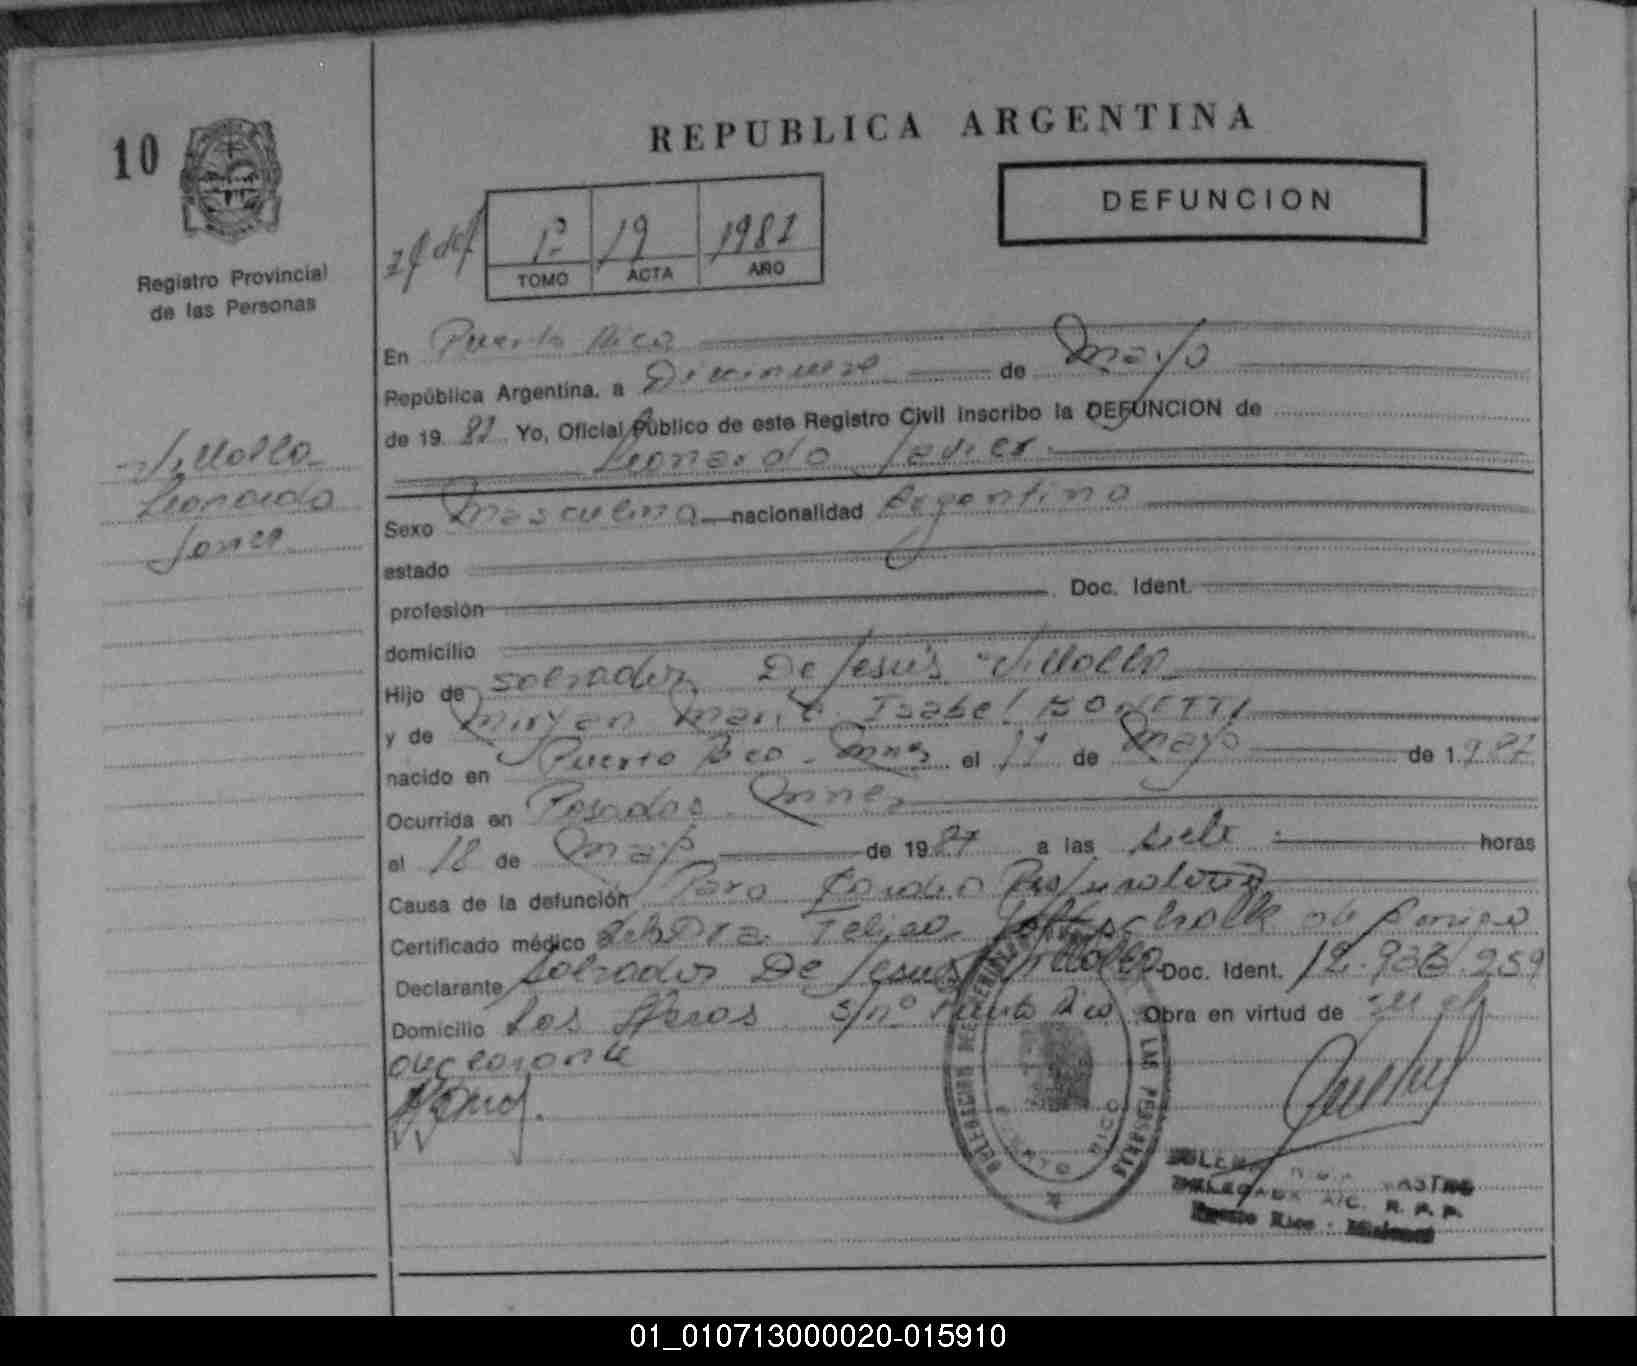 10
REPUBLICA ARGENTINA
DEFUNCION
1º 19 1987
TOMO ACTA AÑO
Registro Provincial
de las Personas
En Puerto Rico
República Argentina, a Diecinueve de Mayo
de 19 87 Yo, Oficial Público de este Registro Civil inscribo la DEFUNCION de
Leonardo Javier
Villalba
Leonardo
Javier
Sexo Masculino nacionalidad Argentino
estado
profesión Doc. Ident.
domicilio
Hijo de Salvador De Jesús Villalba
y de Miryan Maria Isabel BONETTI
nacido en Puerto Rico Mnes el 11 de Mayo de 1987
Ocurrida en Posadas Mnes
el 18 de Mayo de 1987 a las siete horas
Causa de la defunción Paro Cardio Respiratorio
Certificado médico de la Dra.
Declarante Salvador De Jesus Villalba Doc. Ident.
Domicilio Los s/nº Puerto Rico Obra en virtud de
declarante
DELEGACION LAS PERSONAS
PUERTO RICO
DELEGADA A/C. R. P. P.
Puerto Rico - Misiones
01_010713000020-015910